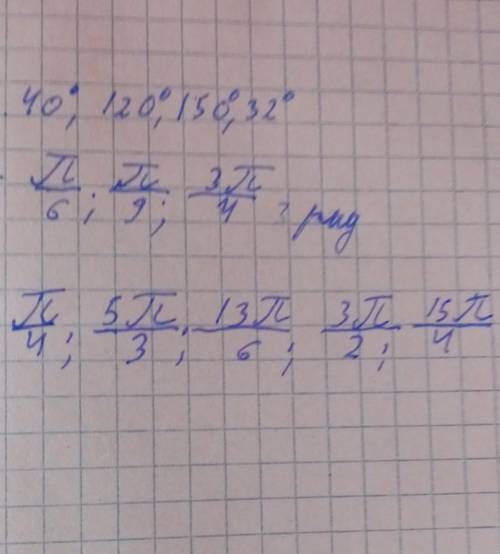 40°; 120°, 150°, 32°
π/6; π/9; 3π/4
π/4; 5π/3; 13π/6; 3π/2; 15π/4